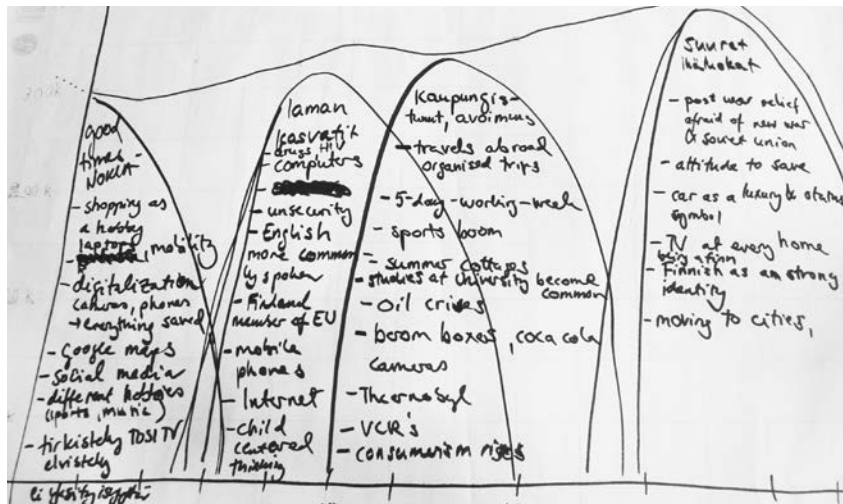 good
times
NOKIA-
- shopping as
a hobby
laptops
, mobility
- digitalization
cameras, phones
→ everything saved
- google maps
- social media
- different hobbies
(sports, music)
- tirkistely TOSI TV
elvistely
laman
kasvatit
- drugs HI
- computers
- unsecurity
- English
more common
ly spoken
- Finland
member of EU
- mobile
phones
- Internet
- child
centered
thinking
Kaupungis-
tunut, avoimuus
- travels abroad
organised trips
- 5-day-working-week
- sports boom
- summer cottages
- studies at University become
common
- Oil crises
- boom boxes, coca cola
cameras
- Thernobyl
- VCR's
- consumarism rises
suuret
ikäluokat
- post war relief
afraid of new war
& soviet union
- attitude to save
- car as a luxury & status
symbol
- TV at every home
being a finn
- Finnish as an strong
identity
- moving to cities,